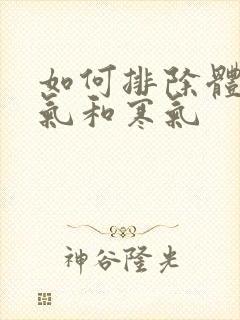 如何排除體
氣和寒氣
神谷隆光